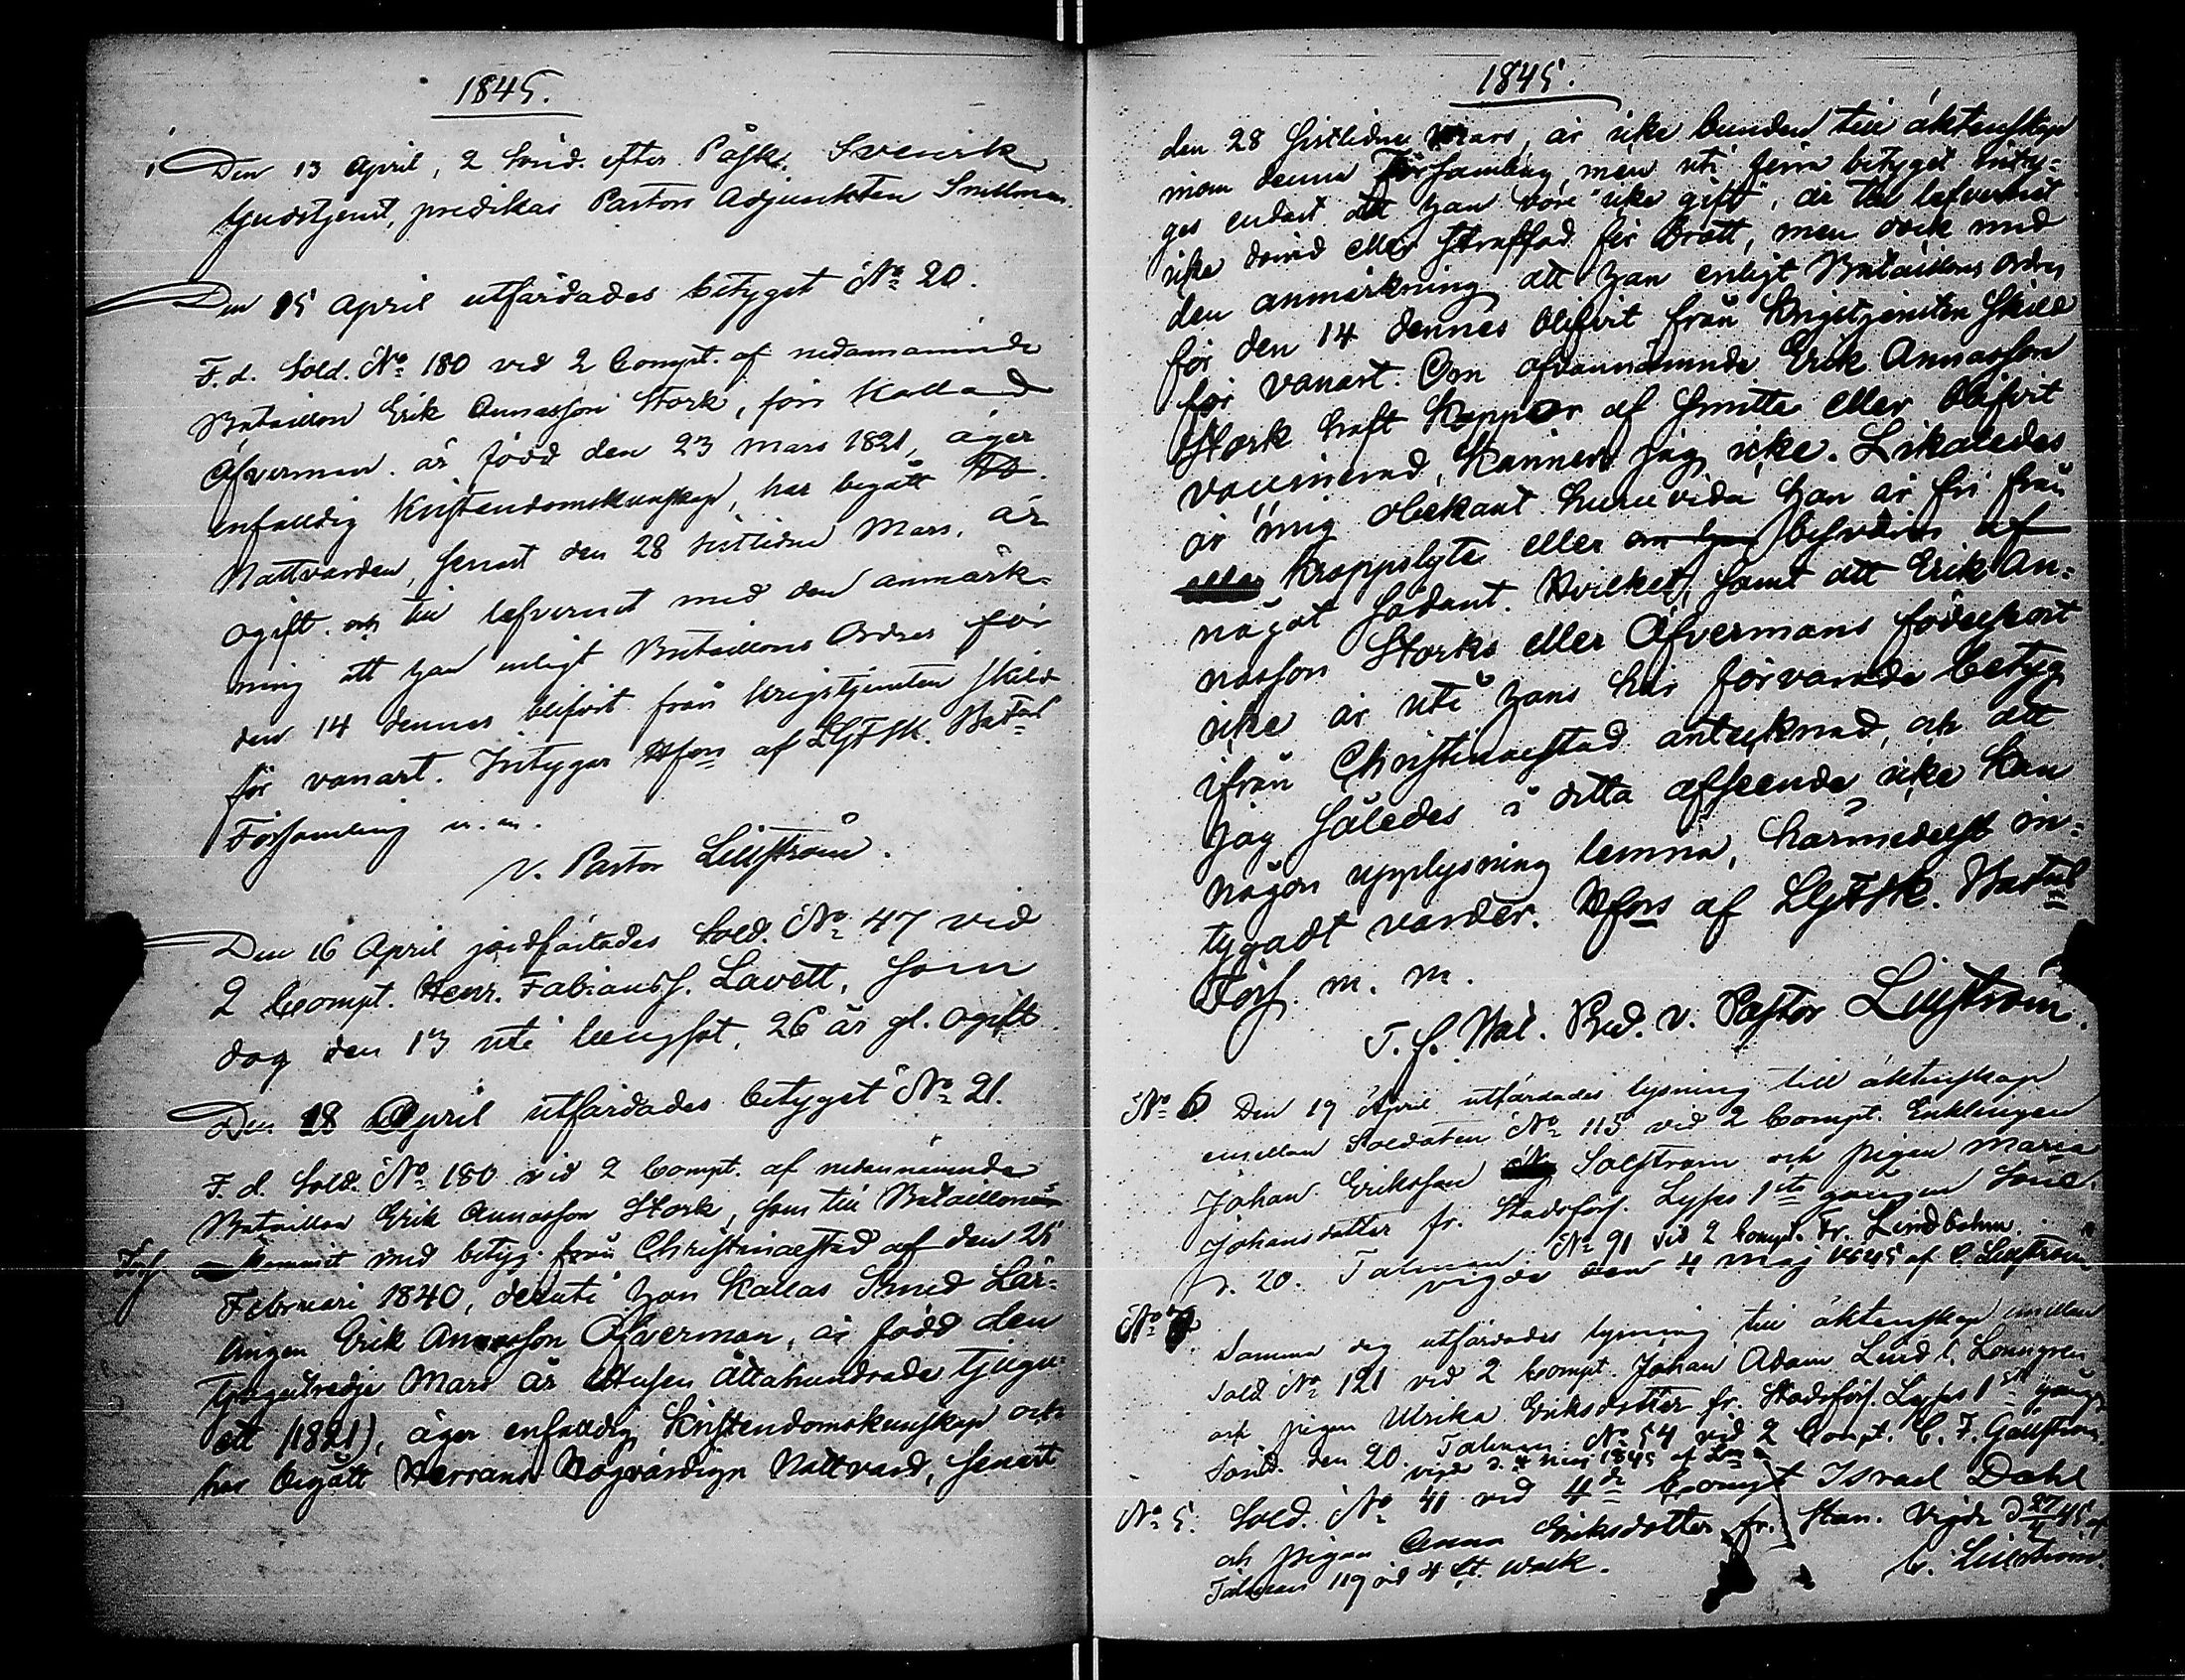 1845.
Den 13 April, 2 Sönd. efter Påsk. Svensk
Gudstjenst, predikas Pastors Adjunkten Smittman.
Den 15 April utfärdades betyget No 20.
F.d. Sold. No 180 vid 2 Compt. af nedannämnde
Bataillon Erik Annasson Stork, förr kallad
Öfverman. är född den 23 Mars 1821, äger
enfaldig Kristendomskunskap, har begått
Nattvarden, senast den 28 sistlidne Mars, är
ogift och till lefvernet med den anmärk-
ning att han enligt Bataillons Ordres för
den 14 dennes blifvit från krigstjensten skild
för vanart. Intygar Hfors af Lif. Fsk. Batns
Församling u.m.
V. Pastor Lillström.
Den 16 April jordfästades Sold. No 47 vid
2 Compt. Henr. Fabianss. Lavett, som
dog den 13 uti lungsot, 26 år gl. ogift
Den 18 April utfärdades betyget No 21.
F.d. Sold. No 180 vid 2 Compt. af nedannämnda
Bataillon Erik Annasson Stork, som till Bataillonen
kommit med betyg från Christinæstad af den 25
Februari 1840, deruti han kallas Smed Lär-
lingen Erik Annasson Öfverman, är född den
tjugutredje Mars år Ettusen åttahundrade tjugu-
ett (1821), äger enfaldig Kristendomskunskap och
har begått Herrans Högvärdiga Nattvard, senast
1845.
den 28 sistlidne Mars, är icke bunden till äktenskap
inom denna Församling, men uti sina betyget inty-
ges endast att han vore "icke gift", är till lefvernet
icke dömd eller straffad för brott, men dock med
den anmärkning att han enligt Bataillons Ordres
för den 14 dennes blifvit från Krigstjensten skild
för vanart. Om ofvannämnde Erik Annasson
Stork haft Koppor af smitta eller blifvit
vaccinerad, känner jag icke. Likaledes
är mig obekant huruvida han är fri från
eller kroppslyte eller om han besväras af
något sådant. Hvilket, samt att Erik An-
nasson Storks eller Öfvermans födelseort
icke är uti hans här förvarade betyg
ifrån Christinaestad antecknad, och att
jag således i detta afseende icke kan
någon upplysning lemna, härmedelst in-
tygadt varder. Hfors af Lif. Fsk. Batns
Förs. m. m.
T. f. Bat. Pred. v. Pastor Lillström.
No 6 Den 19 April utfärdades lysning till äktenskap
emellan Soldaten No 115 vid 2 Compt. Enklingen
Johan Eriksson Solström och pigan Maria
Johansdotter fr. Stadsförs. Lyses 1sta gången Sönd.
d. 20. Talman: No 91 vid 2 Compt. Fr. Lindbohm.
vigde den 4 Maj 1845 af C. Lillström
No 7. Samma dag utfärdades lysning till äktenskap emellan
Sold. No 121 vid 2 Compt. Johan Adam Lind l. Lönngren
och pigan Ulrika Eriksdotter fr. Stadsförs. Lyses 1sta gång
Sönd. den 20. Talman: No 54 vid 2 Compt. C. F. Gallström.
vigde d. 4 Maj 1845 af
No 5. Sold. No 41 vid 4de Compt Israel Dahl
och pigan Anna Eriksdotter fr. Stan. Vigde d 27/4 45 af
Talman 119 vid 4 Walk. C. Lillström.